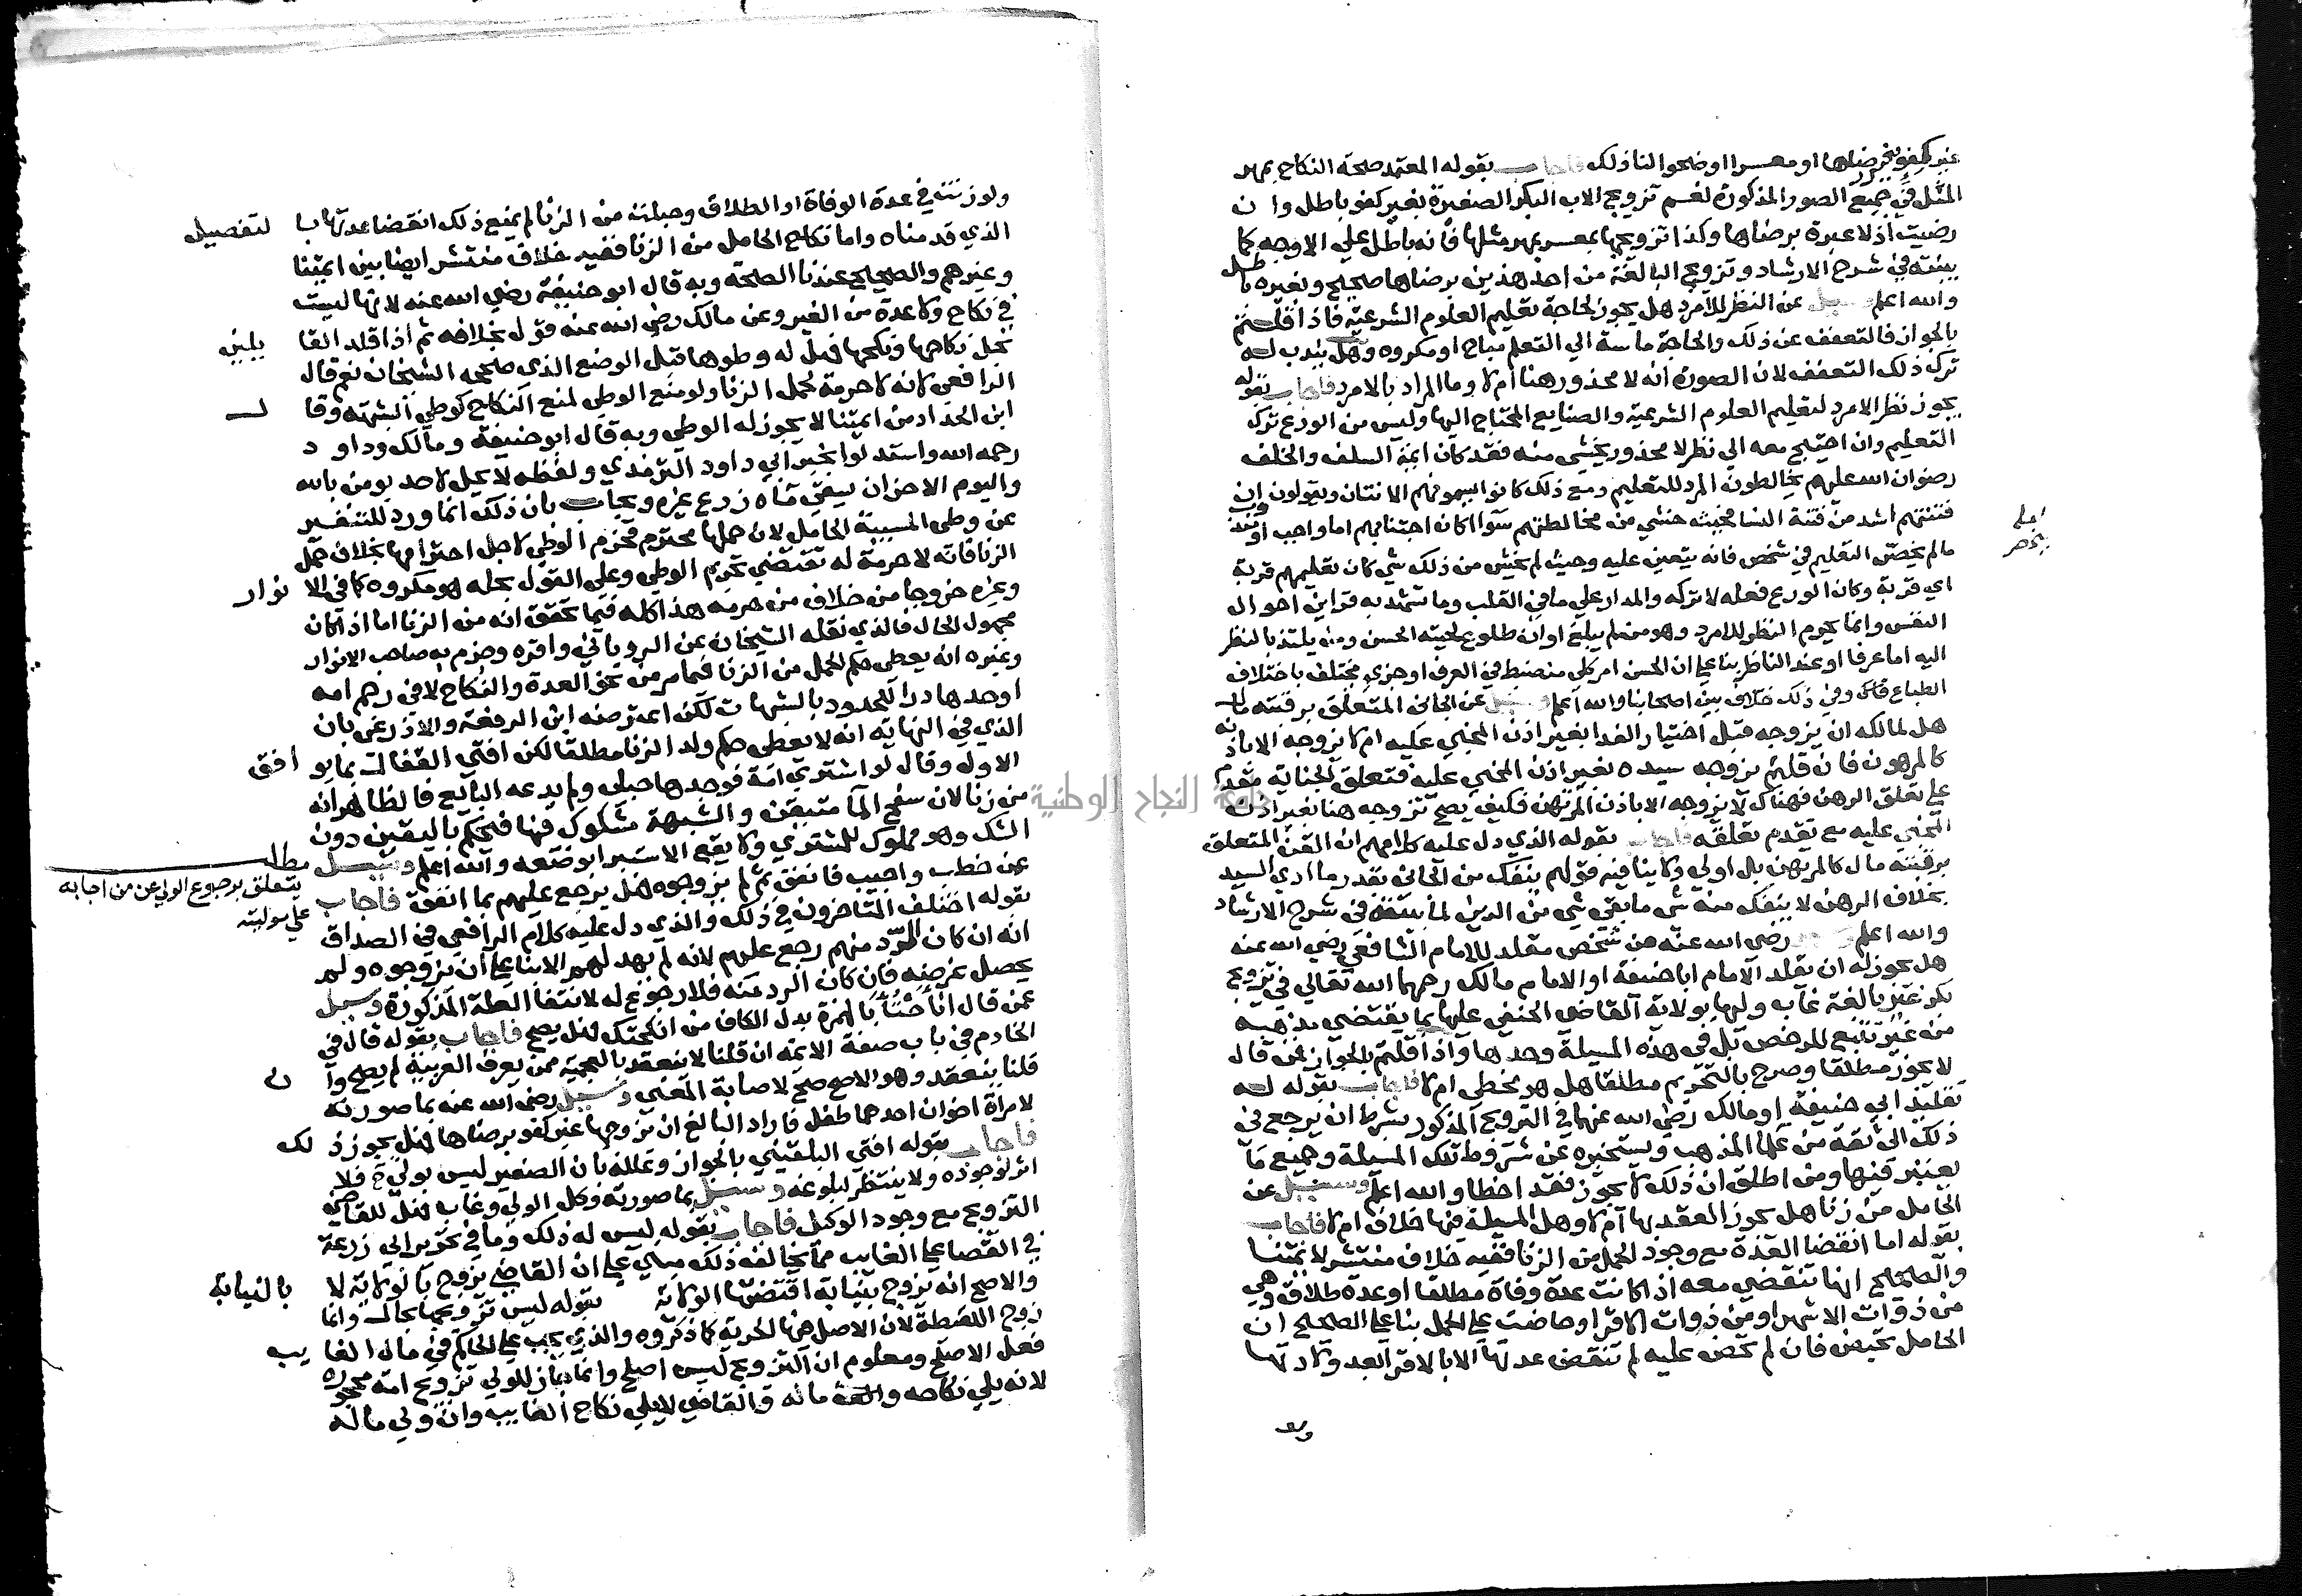 غير كفو بغير رضاها او معسرا اوضحوا لنا ذلك فاجاب بقوله المعتمد صحة النكاح بمهر
المثل في جميع الصور المذكورة نعم تزويج الاب البكر الصغيرة بغير كفو باطل وان
رضيت اذ لا عبرة برضاها وكذا تزويجها بمعسر بمهر مثلها فانه باطل علي الاوجه كما
بينته في شرح الارشاد وتزويج البالغة من احد هذين برضاها صحيح وبغيره باطل
والله اعلم وسيل عن النظر للامرد هل يجوز لحاجة تعليم العلوم الشرعية فاذا قلتم
بالجواز فالتعفف عن ذلك والحاجة ماسة الي التعلم مباح او مكروه وهل يندب له
ترك ذلك التعفف لان الصورة انه لا محذور هنا ام لا وما المراد بالامرد فاجاب بقوله
يجوز نظر الامرد لتعليم العلوم الشرعية والصنايع المحتاج اليها وليس من الورع ترك
التعليم وان احتيج معه الي نظر لا محذور يخشى منه فقد كان ايمة السلف والخلف
رضوان الله عليهم يخالطون المرد للتعليم ومع ذلك كانوا يسمونهم الانتان ويقولون ان
فتنتهم اشد من فتنة النسا فحيث خشي من مخالطتهم سوا كان اجتنابهم اما واجب او
مالم يخص التعليم في شخص فانه يتعين عليه وحيث لم يخش من ذلك شي كان تعليمهم قربة
اي قربة وكان الورع فعله لا تركه والمدار علي ما في القلب وما تشهد به قراين احوال
النفس وانما يحرم النظر للامرد وهو من لم يبلغ اوان طلوع لحيته الحسن ومن يلتذ بالنظر
اليه اما عرفا او عند الناظر بنا علي ان الحسن امر كلي منضبط في العرف او جزي مختلف باختلاف
الطباع وفي ذلك خلاف بين اصحابنا والله اعلم وسيل عن الجاني المتعلق برقبته مال
هل لمالكه ان يزوجه قبل اختيار الفدا بغير اذن المجني عليه ام لا يزوجه الا باذنه
كالمرهون فان قلتم يزوجه سيده بغير اذن المجني عليه فتعلق الجناية مقدم
علي تعلق الرهن فهناك لا يزوجه الا باذن المرتهن فكيف يصح تزوجه هنا بغير اذن
المجني عليه مع تقدم تعلقه فاجاب بقوله الذي دل عليه كلامهم ان القن المتعلق
برقبته مال كالمرتهن بل اولي ولا ينافيه قولهم ينفك من الجاني بقدر ما ادي السيد
بخلاف الرهن لا ينفك منه شي ما بقي شي من الدين لما بينته في شرح الارشاد
والله اعلم وسيل رضي الله عنه عن شخص مقلد للامام الشافعي رضي الله عنه
هل يجوز له ان يقلد الامام ابا حنيفة او الامام مالك رحمهما الله تعالي في تزويج
بكر غير بالغة غاب وليها بولاية القاضي الحنفي عليها بما يقتضي مذهبه
من غير تتبع للرخص بل في هذه المسيلة وحدها واذا قلتم بالجواز فمن قال
لا يجوز مطلقا وصرح بالتحريم مطلقا هل هو مخطي ام لا فاجاب بقوله له
تقليد ابي حنيفة او مالك رضي الله عنهما في التزويج المذكور بشرط ان يرجع في
ذلك الي ثقة من علما المذهب ويستخبره عن شروط تلك المسيلة وجميع ما
يعتبر فيها ومن اطلق ان ذلك لا يجوز فقد اخطا والله اعلم وسيل عن
الحامل من زنا هل يجوز العقد بها ام لا وهل المسيلة فيها خلاف ام لا فاجاب
بقوله اما انقضا العدة مع وجود الحمل من الزنا ففيه خلاف منتشر لايمتنا
والصحيح انها تنقضي معه اذا كانت عدة وفاة مطلقا او عدة طلاق وهي
من ذوات الاشهر او من ذوات الاقرا وحاضت علي الحمل بنا علي الصحيح ان
الحامل تحيض فان لم تحض عليه لم تنقض عدتها الا بالاقرا بعد ولادتها
ولو
ولو زنت في عدة الوفاة او الطلاق وحبلت من الزنا لم يمنع ذلك انقضا عدتها با لتفصيل
الذي قدمناه واما نكاح الحامل من الزنا ففيه خلاف منتشر ايضا بين ايمتنا
وغيرهم والصحيح عندنا الصحة وبه قال ابو حنيفة رضي الله عنه لانها ليست
في نكاح ولا عدة من الغير وعن مالك رضي الله عنه قول بخلافه ثم اذا قلد القا يلين
بحل نكاحها ونكحها فهل له وطوها قبل الوضع الذي صححه الشيخان نعم قال
الرافعي لانه لا حرمة لحمل الزنا ولو منع الوطي لمنع النكاح كوطي الشبهة وقا ل
ابن الحداد من ايمتنا لا يجوز له الوطي وبه قال ابو حنيفة ومالك وداو د
رحمه الله واستدلوا بخبر ابي داود الترمذي ولفظه لا يحل لاحد يومن بالله
واليوم الاخر ان يسقي ماه زرع غيره ويجاب بان ذلك انما ورد للتنفير
عن وطي المسبية الحامل لان حملها محترم فحرم الوطي لاجل احترامها بخلاف حمل
الزنا فانه لا حرمة له تقتضي تحريم الوطي وعلي القول بحله هو مكروه كما في الا نوار
وغيره خروجا من خلاف من حرمه هذا كله فيما تحقق انه من الزنا اما اذا كان
مجهول الحال فالذي نقله الشيخان عن الروياني واقره وجزم به صاحب الانوار
وغيره انه يعطي حكم الحمل من الزنا فيما مر من نحو العدة والنكاح لا في رجم امه
او حدها درا للحدود بالشبهات لكن اعترضه ابن الرفعة والاذرعي بان
الذي في النهاية انه لا يعطي حكم ولد الزنا مطلقا لكن افتي القفال بما يو افق
الاول وقال لو اشتري امة فوجدها حبلي ولم يدعه البايع فالظاهر انه
من زنا لان سفح الما متيقن والشبهة مشكوك فيها فيحكم باليقين دون
الشك وهو مملوك للمشتري ولا يقع الاستبرا بوضعه والله اعلم وسيل
مطلب
يتعلق برجوع الولي عن من اجابه
علي موليته
عن خطب واجيب فانفق ثم لم يزوجوه هل يرجع عليهم بما انفق فاجاب
بقوله اختلف المتاخرون في ذلك والذي دل عليه كلام الرافعي في الصداق
انه ان كان الرد منهم رجع عليهم لانه لم يهد لهم الا بنا علي ان يزوجوه ولم
يحصل غرضه فان كان الرد منه فلا رجوع له لانتفا العلة المذكورة وسيل
عمن قال بالهمزة بدل الكاف من انكحتك هل يصح فاجاب بقوله قال في
الخادم في باب صفة الايمة ان قلنا لا ينعقد بالعجمية ممن يعرف العربية لم يصح وا ن
قلنا ينعقد وهو الاصح صح لاصابة المعني وسيل رضي الله عنه بما صورته
لامراة اخوان احدهما طفل فاراد البالغ ان يزوجها غير كفو برضاها هل يجوز ذ لك
فاجاب بقوله افتي البلقيني بالجواز وعلله بان الصغير ليس بولي فلا
اثر لوجوده ولا ينتظر لبلوغه وسيل بما صورته وكل الولي وغاب هل للقاضي
التزويج مع وجود الوكيل فاجاب بقوله ليس له ذلك وما في تحرير ابي زرعة
في القضا علي الغايب مما يخالف ذلك مبني علي ان القاضي يزوج بالولاية لا بالنيابة
والاصح انه يزوج بنيابة اقتضتها الولاية بقوله ليس تزويجها بحال وانما
زوج اللقيطة لان الاصل فيها الحرية كما ذكروه والذي يجب علي الحاكم في مال الغا يب
فعل الاصلح ومعلوم ان التزويج ليس اصلح وانما جاز للولي تزويج امة محجوره
لانه يلي نكاحه وماله والقاضي لا يلي نكاح الغايب وان ولي ماله